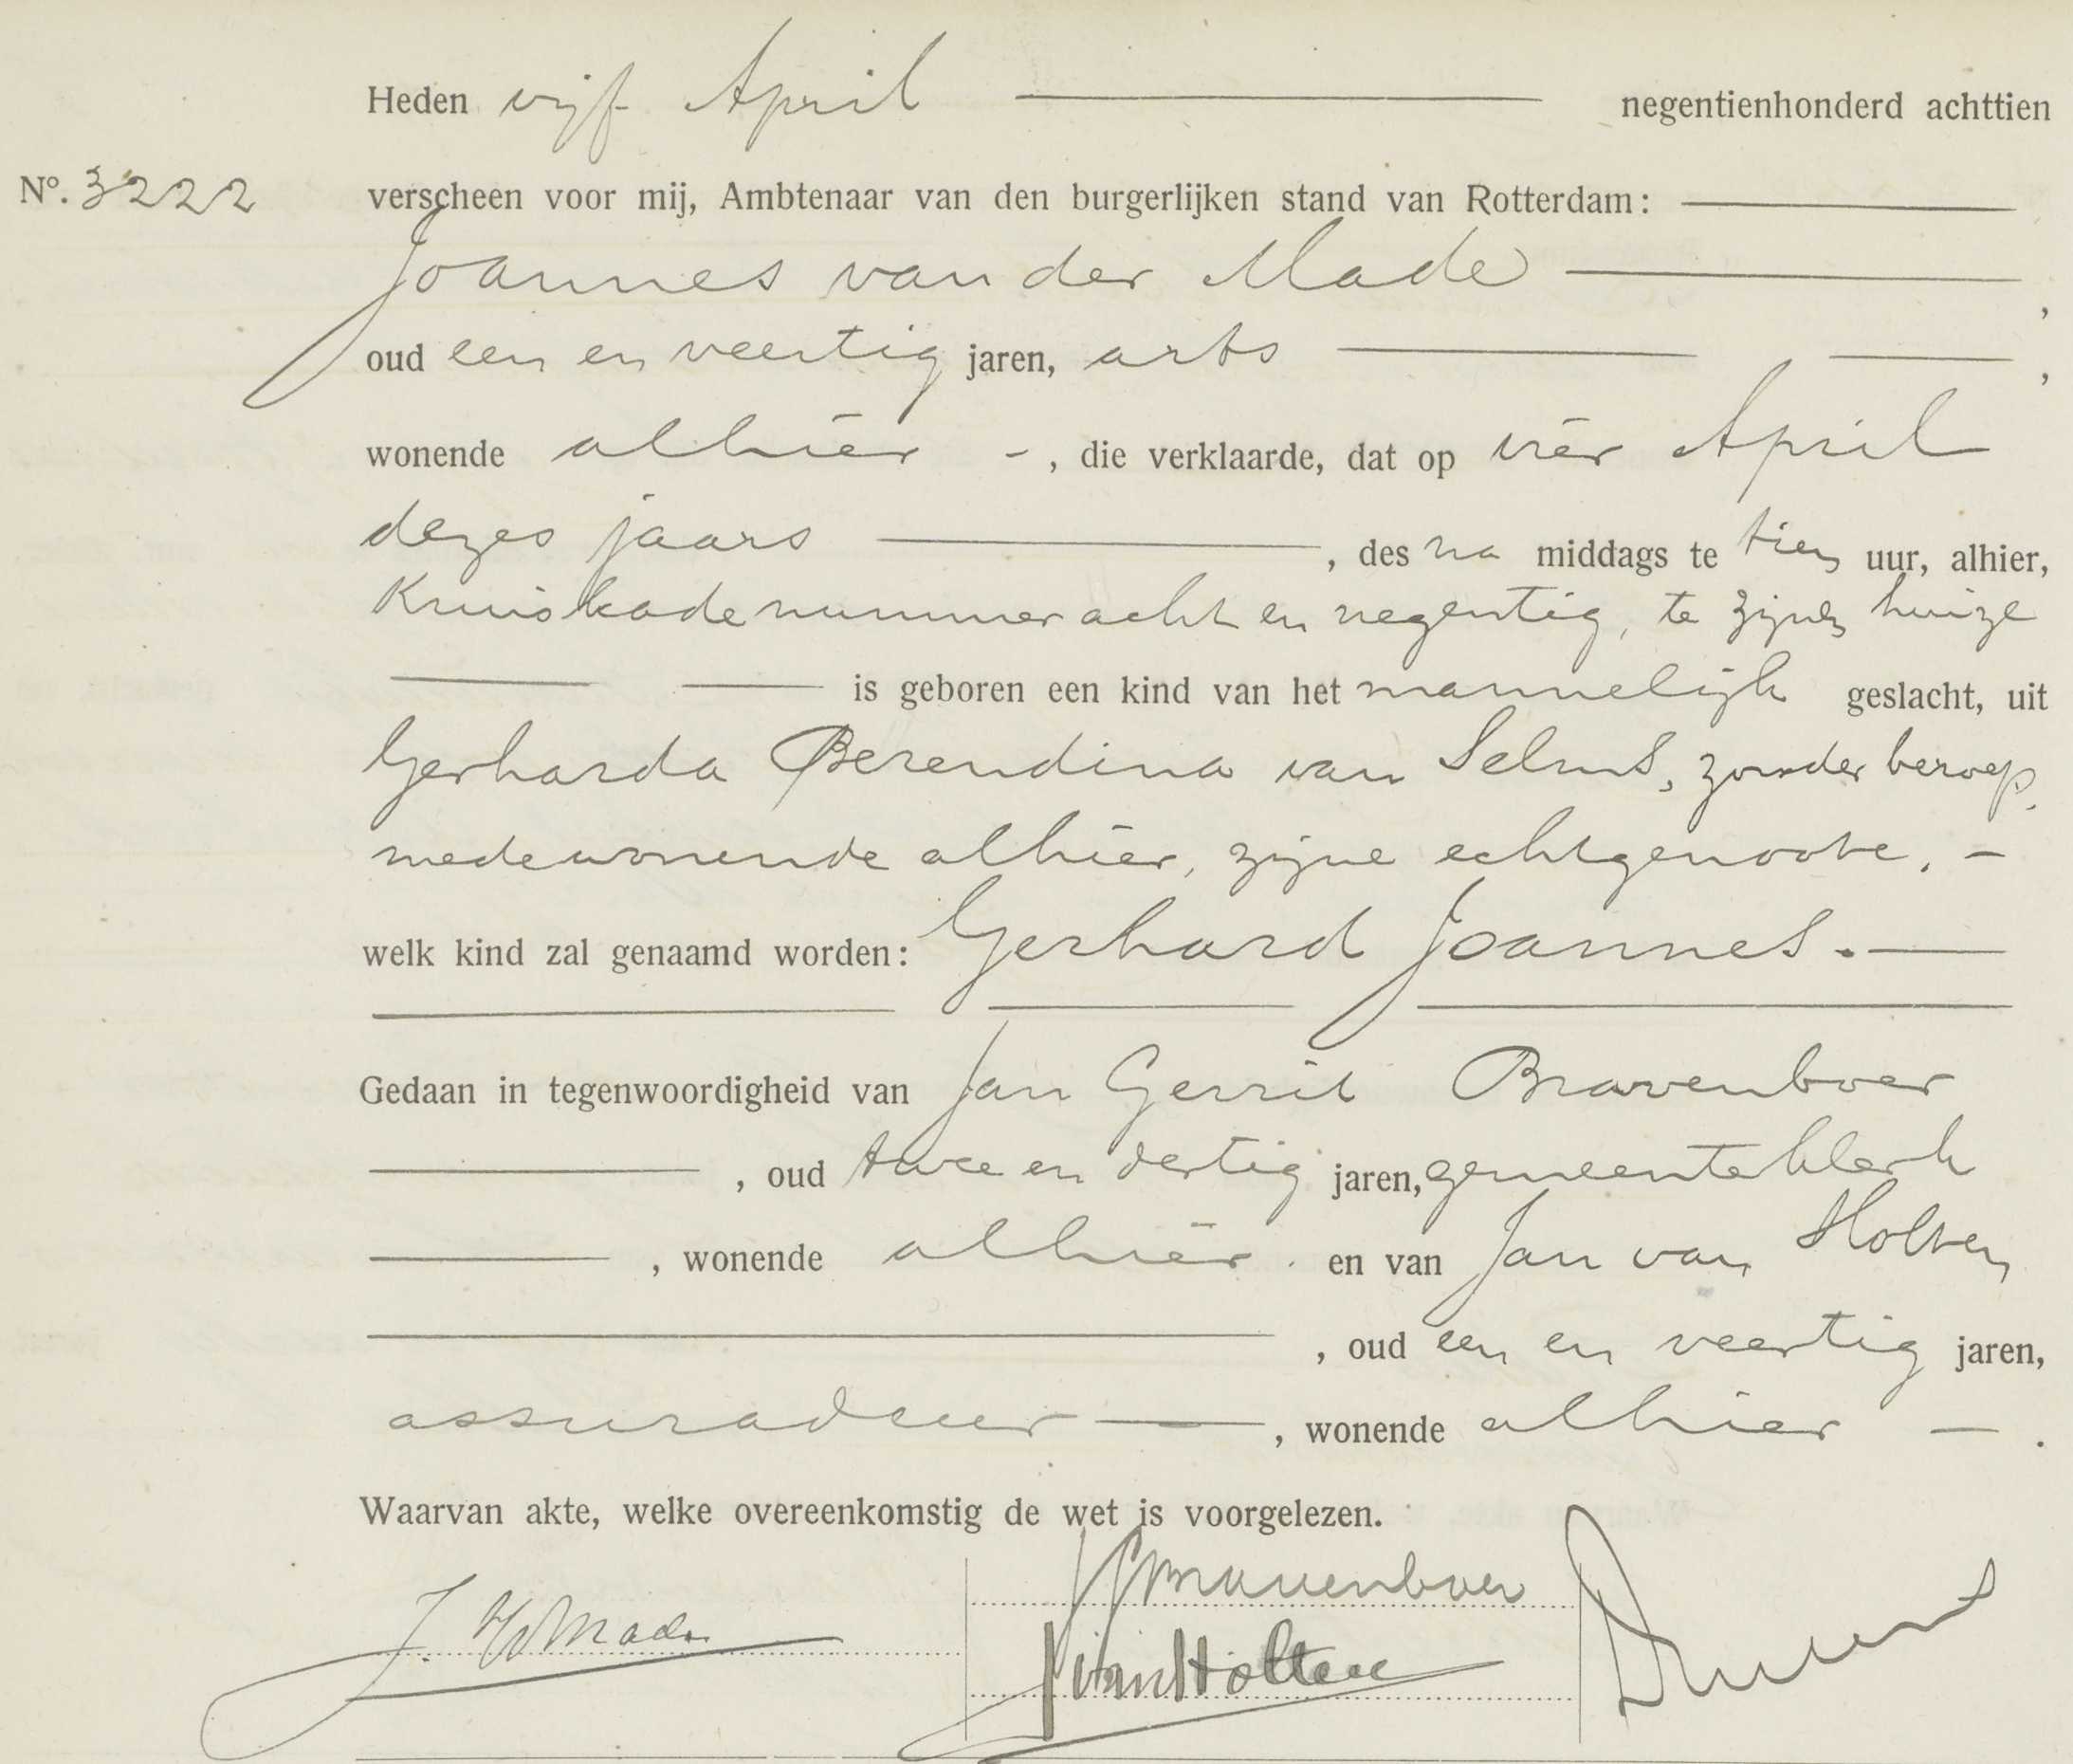 Heden vijf April negentienhonderd achttien
No. 3222
verscheen voor mij, Ambtenaar van den burgerlijken stand van Rotterdam:
Joannes van der Made ,
oud een en veertig jaren, arts ,
wonende alhier -, die verklaarde, dat op vier April
dezes jaars , des na middags te tien uur, alhier,
Kruiskade nummer acht en negentig, te zijnen huize
is geboren een kind van het mannelijk geslacht, uit
Gerharda Berendina van Selms, zonder beroep,
medewonende alhier, zijne echtgenoote, -
welk kind zal genaamd worden: Gerhard Joannes. -
Gedaan in tegenwoordigheid van Jan Gerrit Bravenboer
, oud twee en dertig jaren, gemeenteklerk
, wonende alhier. en van Jan van Holten
, oud een en veertig jaren,
assuradeur , wonende alhier - .
Waarvan akte, welke overeenkomstig de wet is voorgelezen.
JGBravenboer
J. vd Made
JvanHolten